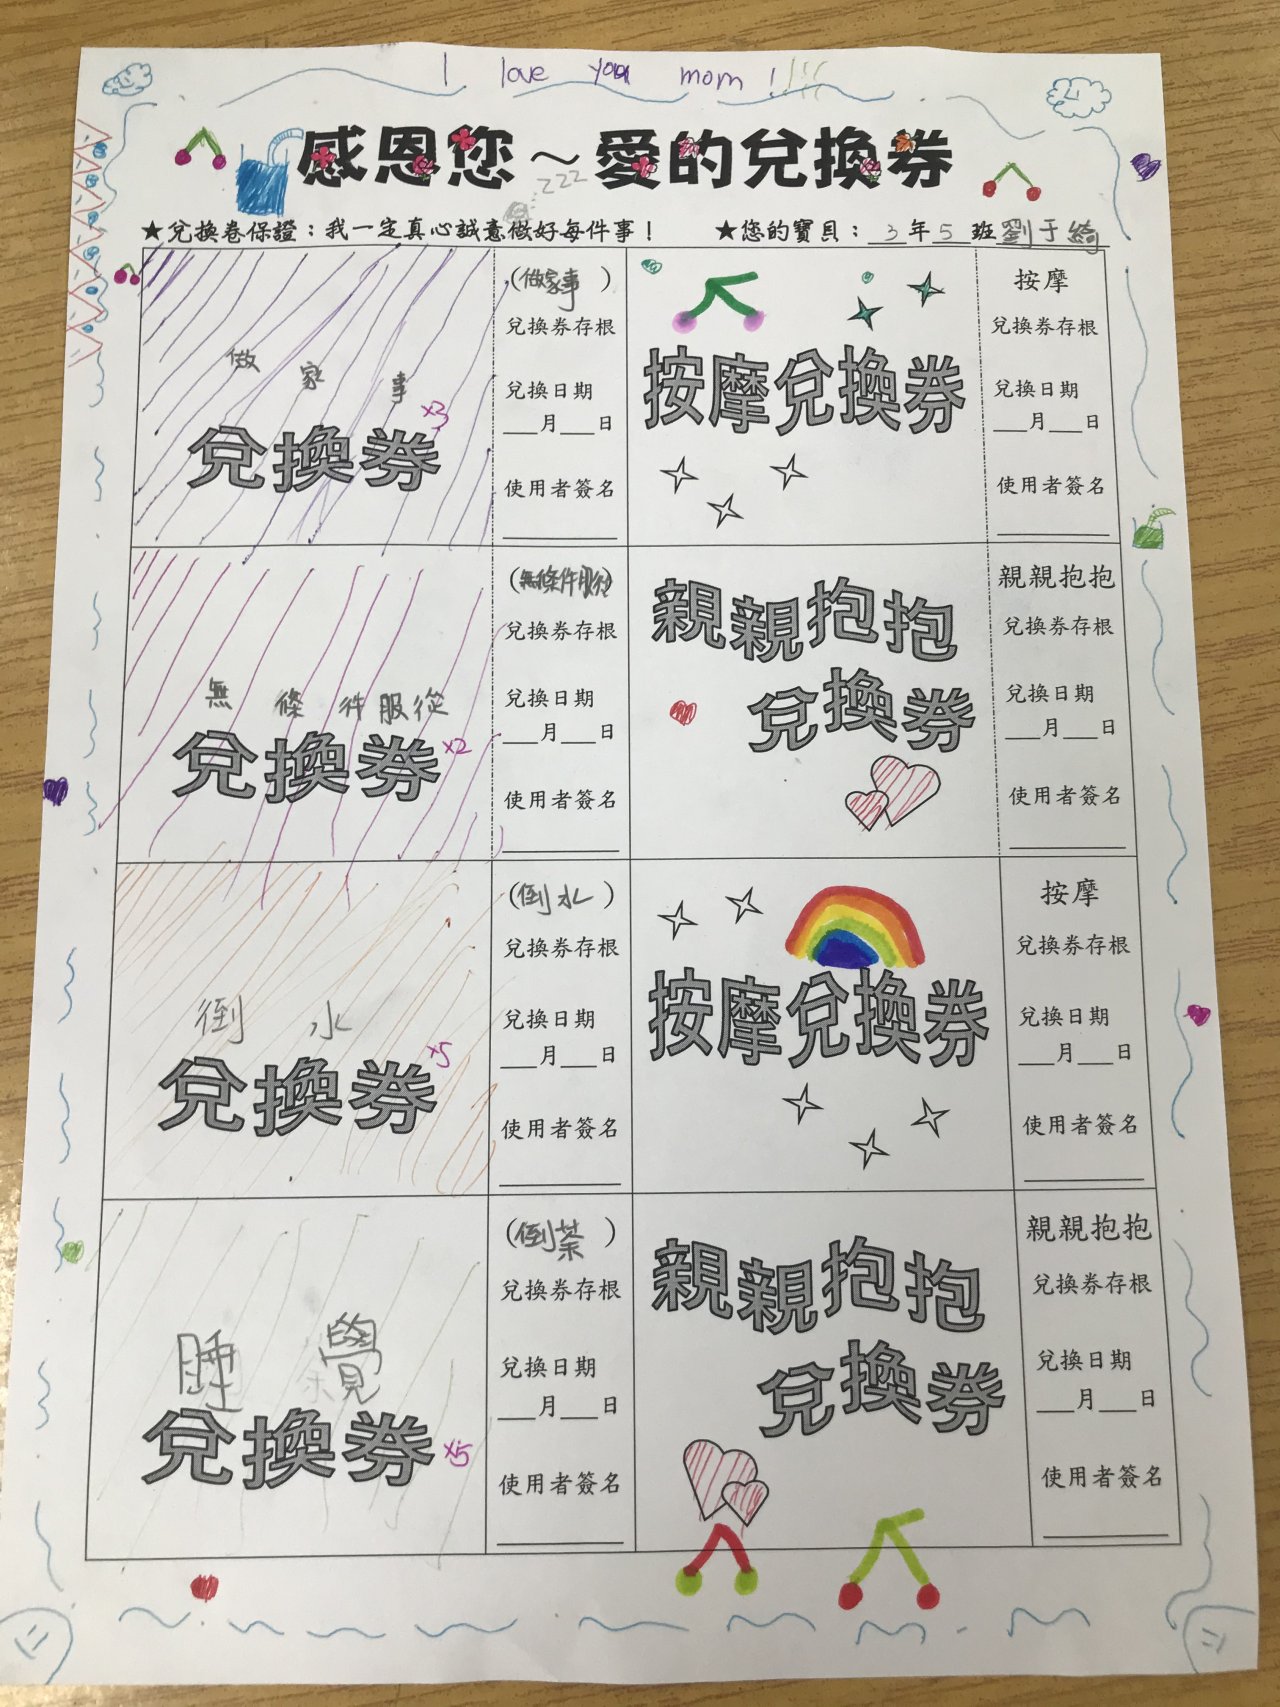 I love you mom!!!!
感恩您～愛的兌換券
zzz
★兌換卷保證：我一定真心誠意做好每件事！ ★您的寶貝：3年5班劉于綺
做家事 x3
兌換券
(做家事)
兌換券存根
兌換日期
__月__日
使用者簽名
按摩兌換券
按摩
兌換券存根
兌換日期
__月__日
使用者簽名
無條件服從
兌換券 x2
(無條件服從)
兌換券存根
兌換日期
__月__日
使用者簽名
親親抱抱
兌換券
親親抱抱
兌換券存根
兌換日期
__月__日
使用者簽名
倒水
兌換券 x5
(倒水)
兌換券存根
兌換日期
__月__日
使用者簽名
按摩兌換券
按摩
兌換券存根
兌換日期
__月__日
使用者簽名
睡覺
兌換券 x5
(倒茶)
兌換券存根
兌換日期
__月__日
使用者簽名
親親抱抱
兌換券
親親抱抱
兌換券存根
兌換日期
__月__日
使用者簽名